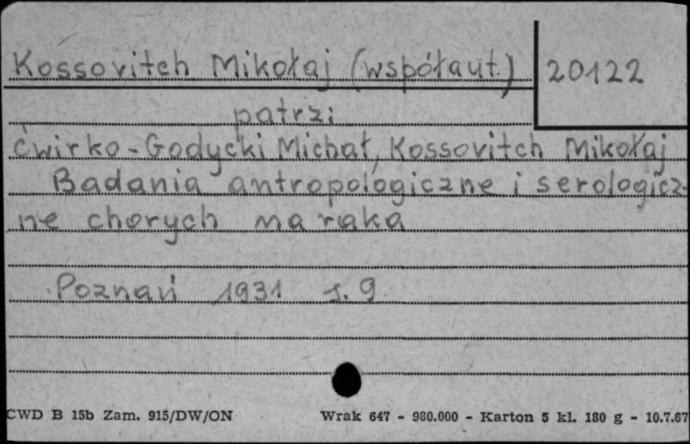 Kossovitch Mikołaj (współaut.) 20122
patrz:
Ćwirko-Godycki Michał, Kossovitch Mikołaj
Badania antropologiczne i serologicz-
ne chorych na raka
Poznań 1931 s. 9
CWD B 15b Zam. 915/DW/ON Wrak 647 - 980.000 - Karton 5 kl. 180 g - 10.7.67